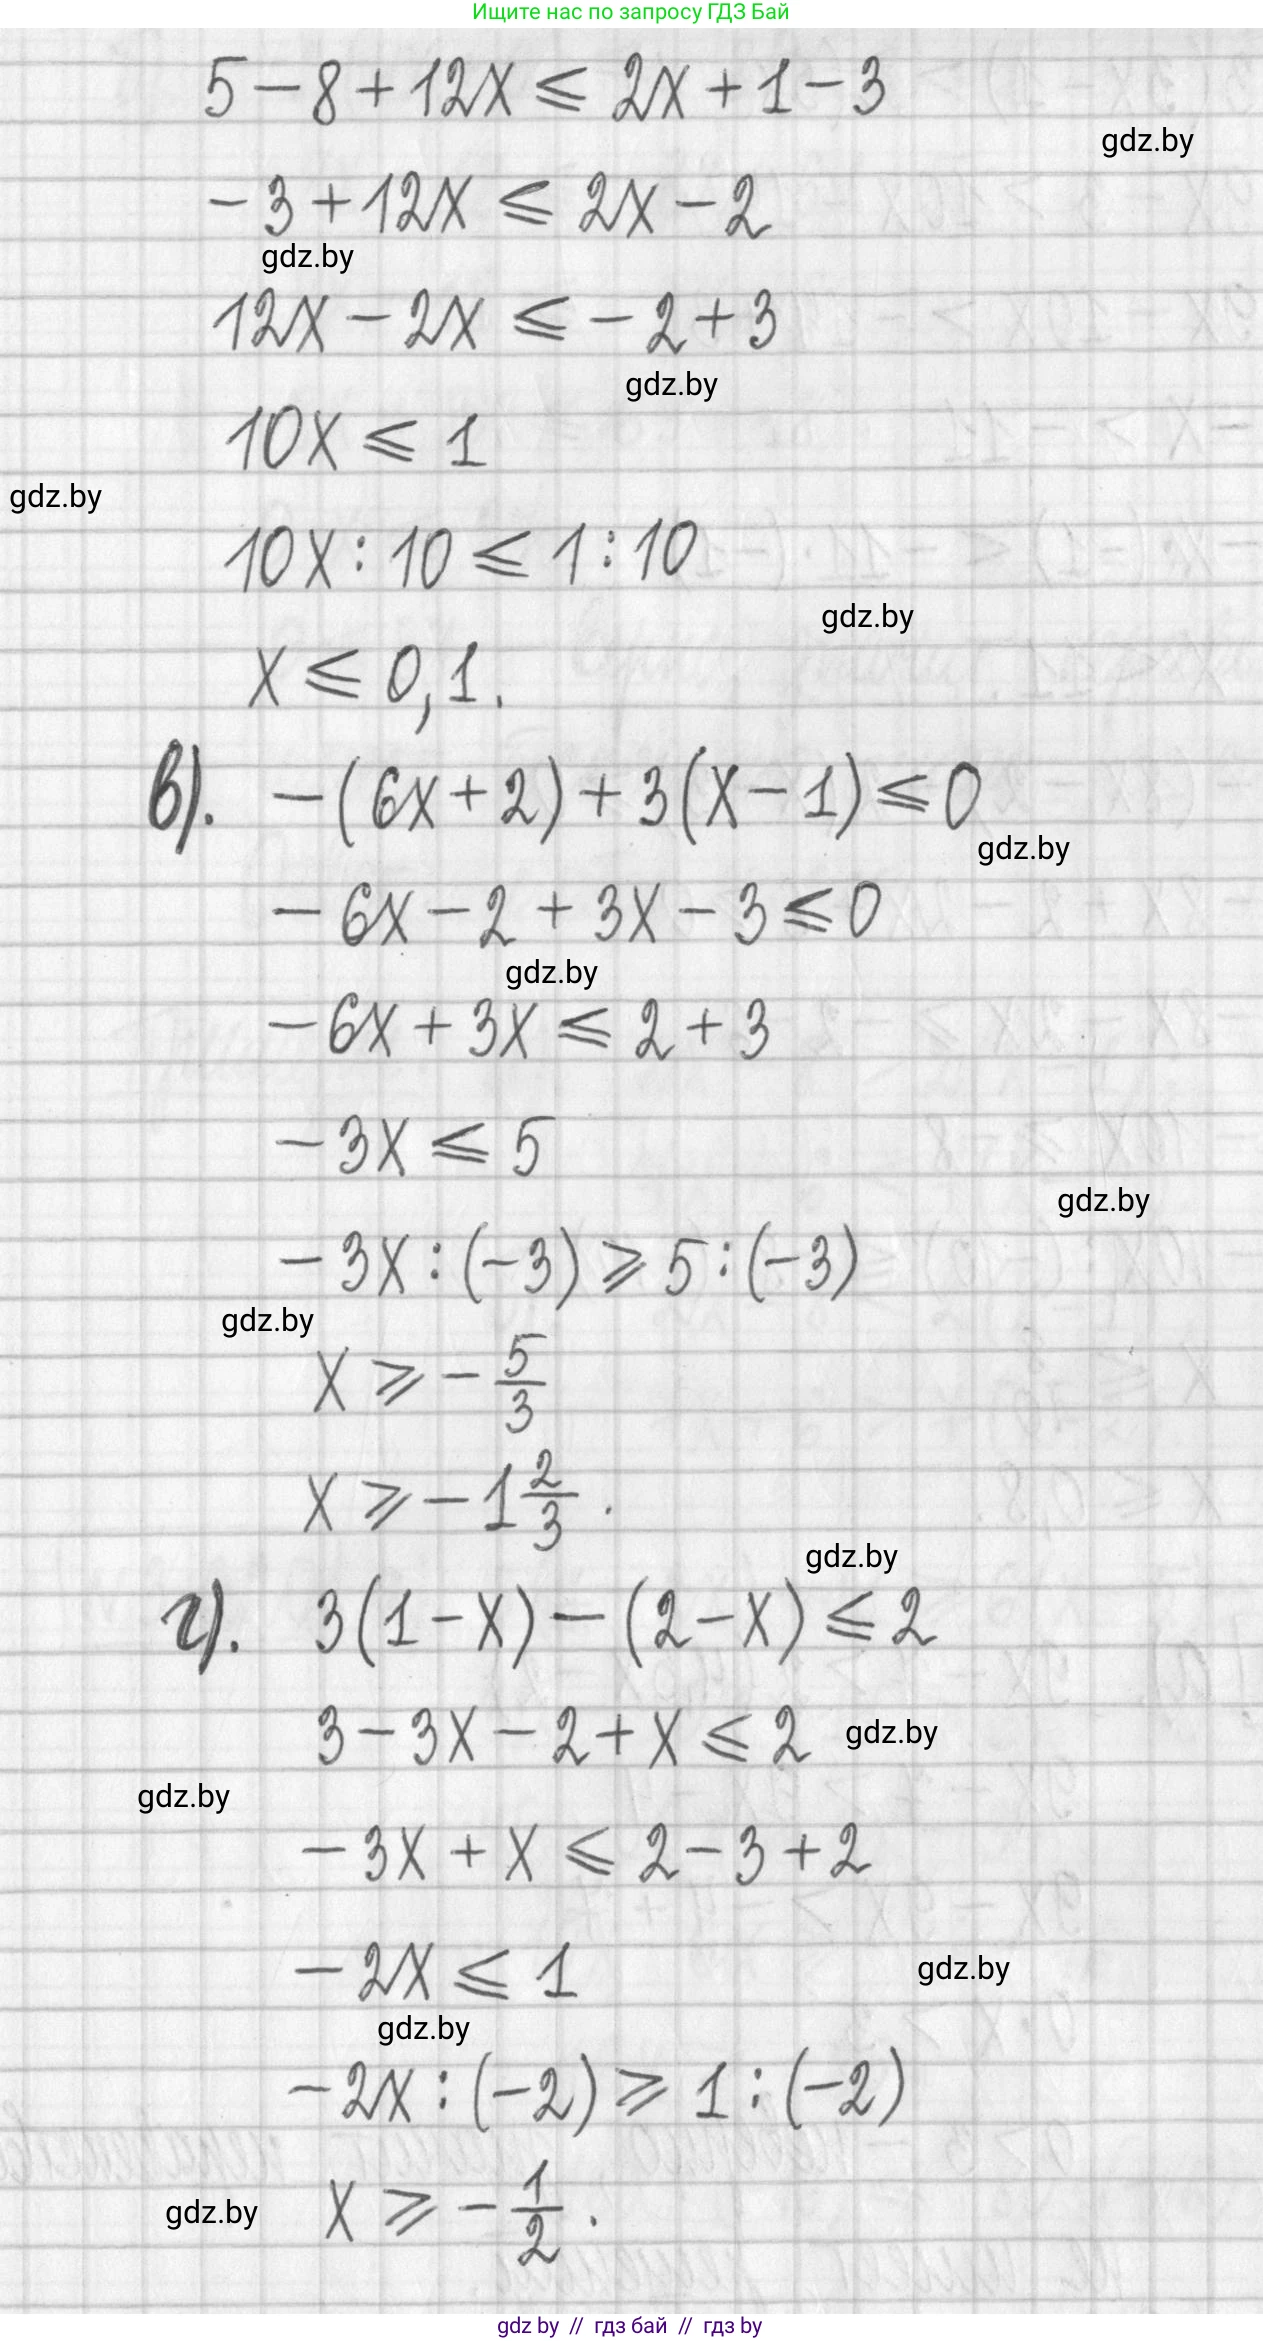 Ищите нас по запросу ГДЗ Бай
5 - 8 + 12x ⩽ 2x + 1 - 3
gdz.by
- 3 + 12x ⩽ 2x - 2
gdz.by
12x - 2x ⩽ - 2 + 3
gdz.by
10x ⩽ 1
gdz.by
10x : 10 ⩽ 1 : 10
gdz.by
x ⩽ 0,1.
в). - (6x + 2) + 3(x - 1) ⩽ 0
gdz.by
- 6x - 2 + 3x - 3 ⩽ 0
gdz.by
- 6x + 3x ⩽ 2 + 3
- 3x ⩽ 5
gdz.by
- 3x : (-3) ⩾ 5 : (-3)
gdz.by
x ⩾ - 5/3
x ⩾ - 1 2/3 .
gdz.by
г). 3(1 - x) - (2 - x) ⩽ 2
3 - 3x - 2 + x ⩽ 2 gdz.by
gdz.by
- 3x + x ⩽ 2 - 3 + 2
- 2x ⩽ 1
gdz.by
gdz.by
- 2x : (-2) ⩾ 1 : (-2)
gdz.by x ⩾ - 1/2 .
gdz by // гдз бай // гдз by